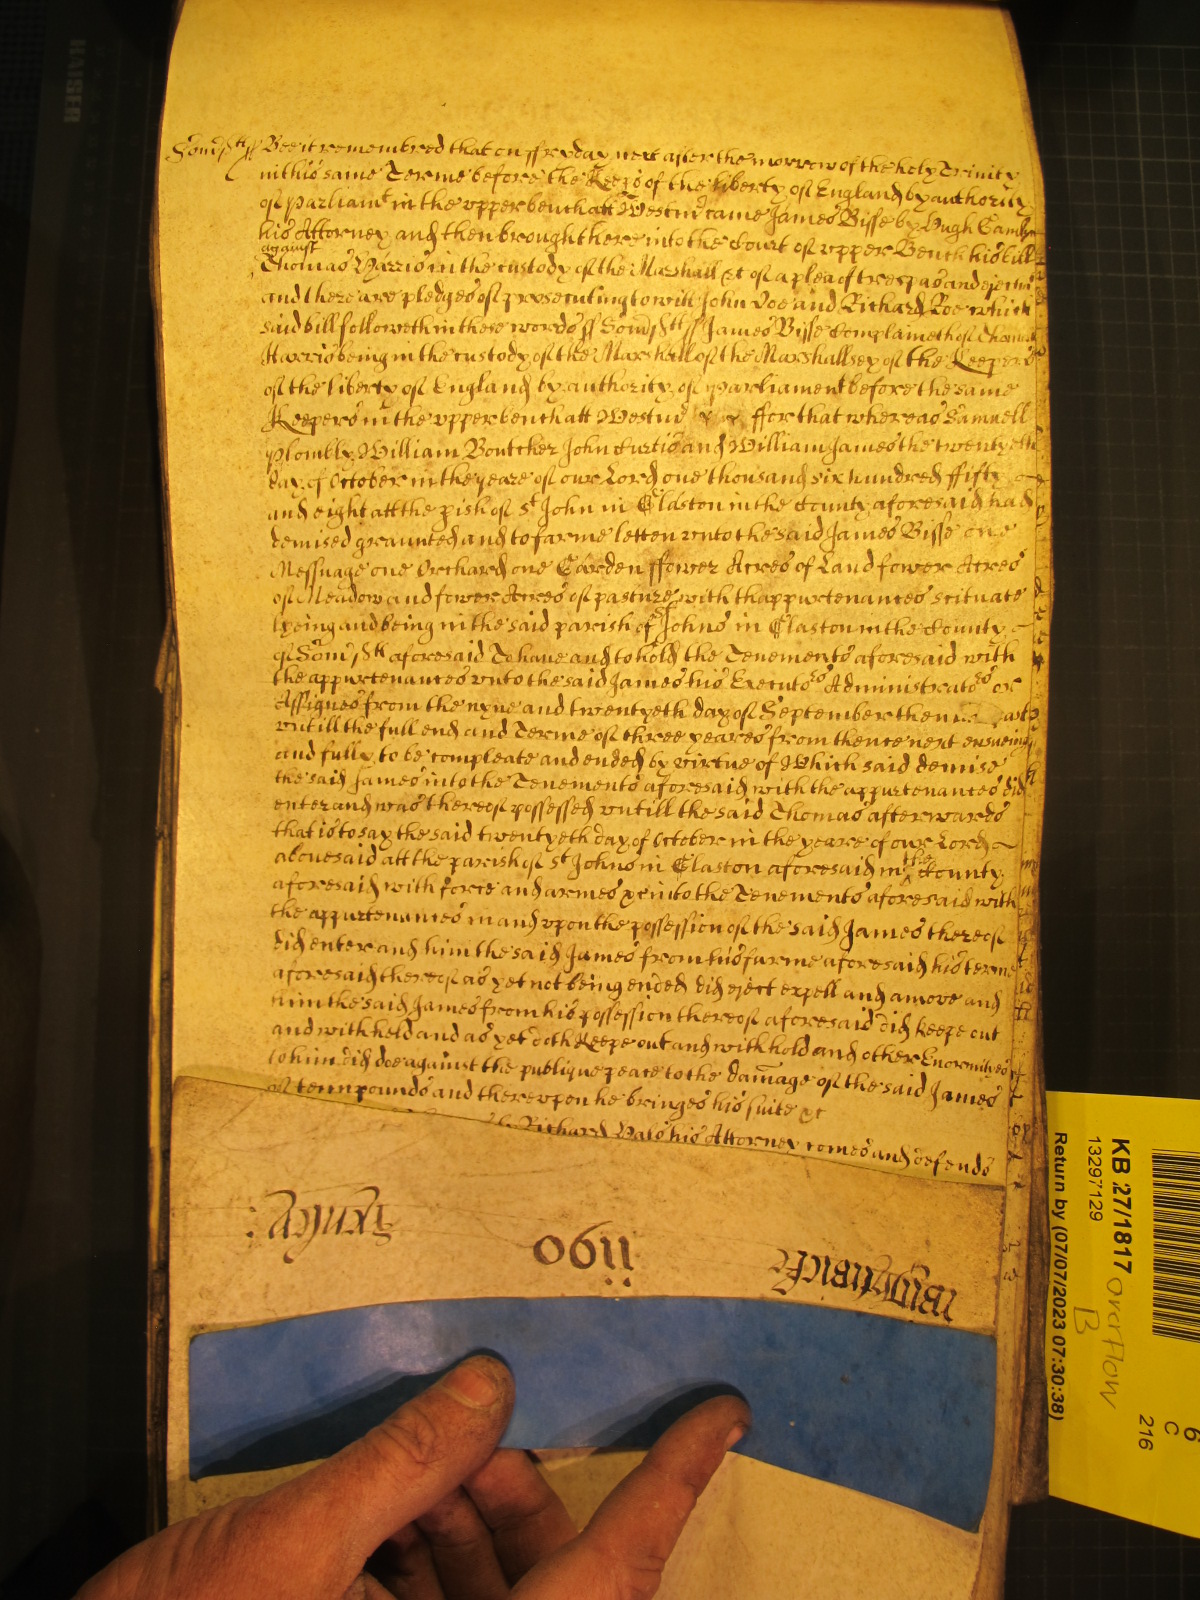 Som̃sett ss Bee it remembred that on ffryday next after the morrow of the holy Trinity
in this same Terme before the Keeps of the liberty of England by authority
of Parliamt in the vpper bench att Westmr came James Bisse by Hugh
his Attorney and then brought here into the Court of vpper Bench his bill
against
Thomas Harris in the custody of the Marshall &c of a plea of trespas and ejectmt
and there are pledges of prosecuting to witt John Doe and Richard Roe which
said bill followeth in these words ss Som̃sett ss James Bisse Complaineth of Thomas
Harris being in the custody of the Marshall of the Marshallsey of the Keepers
of the liberty of England by authority of Parliament before the same
Keepers in the vpper bench att Westmr ffor that whereas Samuell
Plombly William Boutcher John Curtis and William James the twentyeth
day of October in the yeare of our Lord one thousand six hundred ffifty
and eight att the pish of St John in Glaston in the County aforesaid had
demised graunted and to farme letten vnto the said James Bisse one
Messuage one Orchard one Garden ffower Acres of Land fower Acres
of Meadow and fower Acres of pasture with thappurtenances scituate
lyeing and being in the said parish of St Johns in Glaston in the County
of Som̃sett aforesaid To haue and to hold the Tenements aforesaid with
the appurtenances vnto the said James his Executors Administrators or
Assignes from the nyne and twentyeth day of September then
vntill the full end and Terme of three yeares from thence next ensueing
and fully to be compleate and ended by virtue of Which said demise
the said James into the Tenements aforesaid with the appurtenances did
enter and was thereof possessed vntill the said Thomas afterwards
that is to say the said twentyeth day of October in the yeare of our Lord
abouesaid att the parish of St Johns in Glaston aforesaid in the County
aforesaid with force and armes &c into the Tenements aforesaid with
the appurtenances in and vpon the possession of the said James thereof
did enter and him the said James from his farme aforesaid his terme
aforesaid thereof as yet not being ended did eject expell and amove and
him the said James from his possession thereof aforesaid did keepe out
and withheld and as yet doth Keepe out and withhold and other Enormityes
to him did doe against the publique peace to the dam̃age of the said James
of tenn pounds and therevpon he bringes his suite &c
Richard Hals his Attorney comes and defends
1190
KB 27/1817
13297129
Return by (07/07/2023 07:30:38)
overflow
B
6
C
216
KAISER